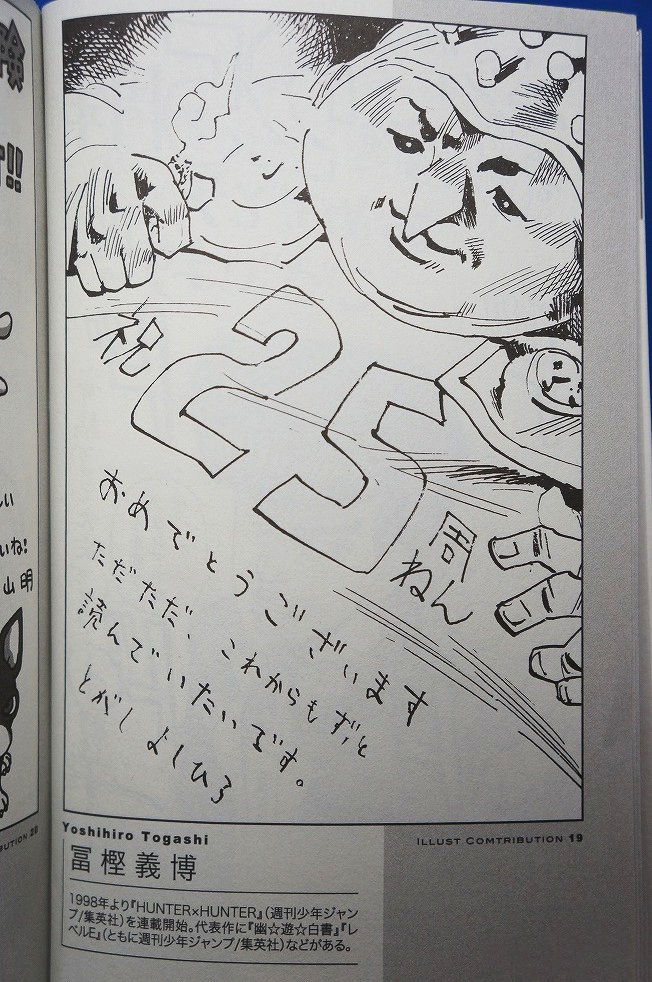 祝
25
周
ねん
おめでとうございます
ただただ、これからもずっと
読んでいたいです。
とがしよしひろ
Yoshihiro Togashi
ILLUST COMTRIBUTION 19
冨樫義博
1998年より『HUNTER×HUNTER』(週刊少年ジャン
プ/集英社)を連載開始。代表作に『幽☆遊☆白書』『レ
ベルE』(ともに週刊少年ジャンプ/集英社)などがある。
!!
しい
いね!
山明
BUTION 20